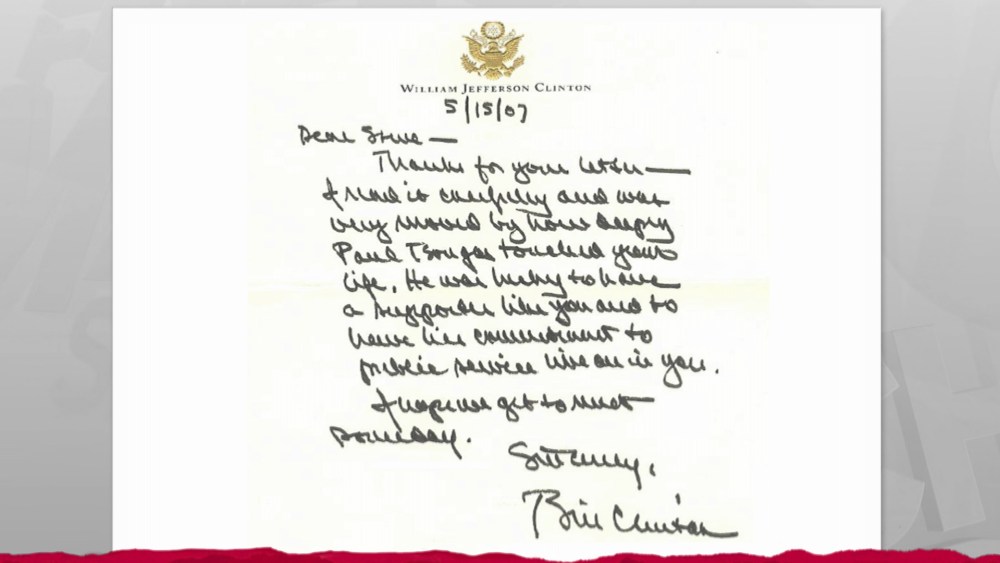 WILLIAM JEFFERSON CLINTON
5/15/07
Dear Steve —
Thanks for your letter —
I read it carefully and was
very moved by how deeply
Paul Tsongas touched your
life. He was lucky to have
a supporter like you and to
have his commitment to
public service live on in you.
I hope we get to meet
someday.
Sincerely,
Bill Clinton